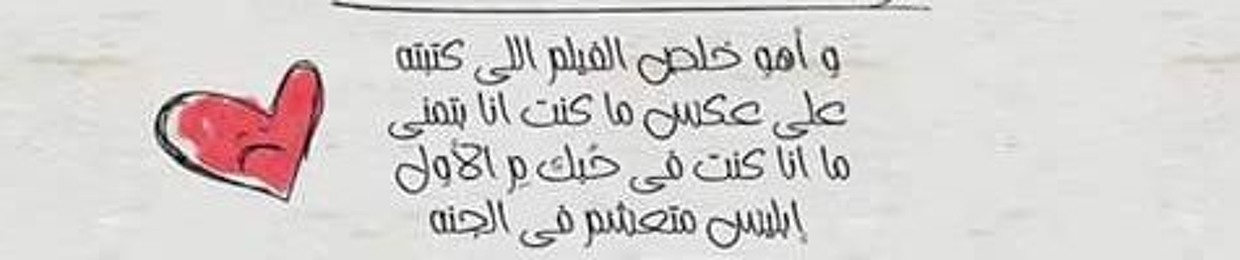 و أهو خلص الفيلم اللى كتبته
على عكس ما كنت انا بتمنى
ما انا كنت فى حُبك م الأول
إبليس متعشم فى الجنه